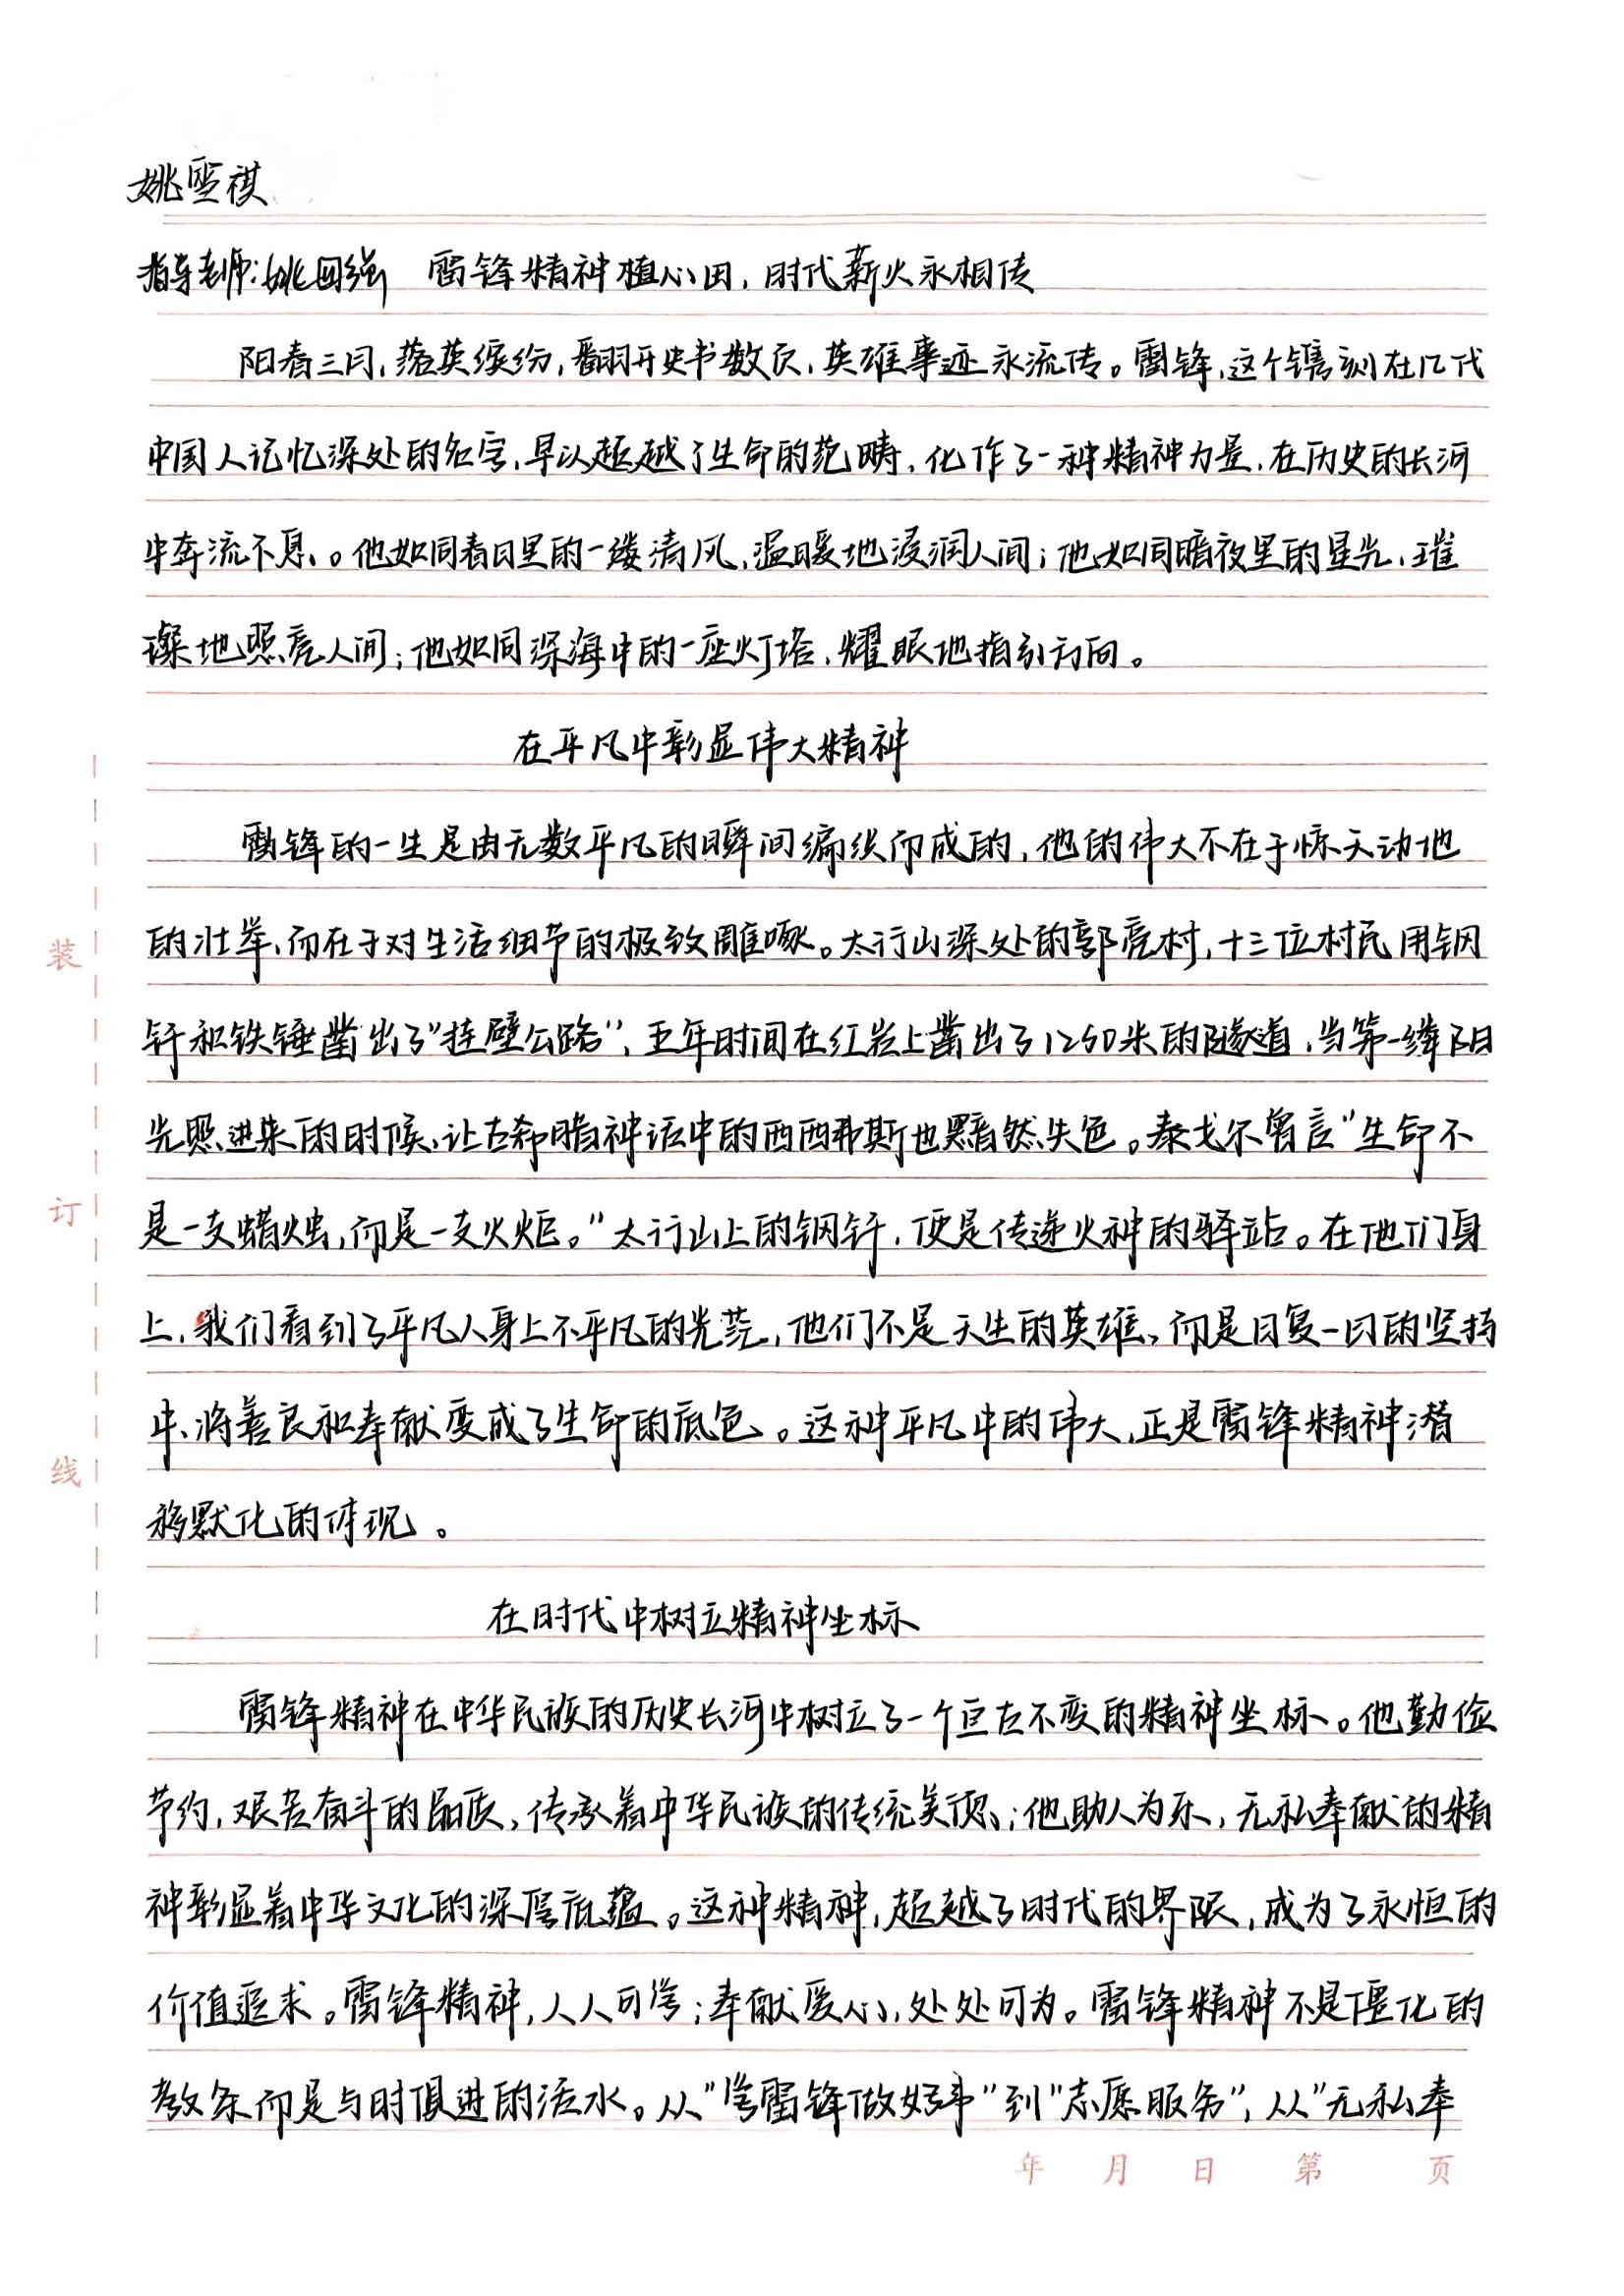 姚雪祺
指导老师:姚国强 雷锋精神植心田,时代薪火永相传
阳春三月,落英缤纷,翻开史书数页,英雄事迹永流传。雷锋,这个镌刻在几代
中国人记忆深处的名字,早以超越了生命的范畴,化作了一种精神力量,在历史的长河
中奔流不息。他如同春日里的一缕清风,温暖地浸润人间;他如同暗夜里的星光,璀
璨地照亮人间;他如同深海中的一座灯塔,耀眼地指引方向。
在平凡中彰显伟大精神
雷锋的一生是由无数平凡的瞬间编织而成的,他的伟大不在于惊天动地
的壮举,而在于对生活细节的极致雕啄。太行山深处的郭亮村,十三位村民用钢
钎和铁锤凿出了"挂壁公路",五年时间在红岩上凿出了1250米的隧道,当第一缕阳
光照进来的时候,让古希腊神话中的西西弗斯也黯然失色。泰戈尔曾言"生命不
是一支蜡烛,而是一支火炬。"太行山上的钢钎,便是传递火种的驿站。在他们身
上,我们看到了平凡人身上不平凡的光芒,他们不是天生的英雄,而是日复一日的坚持
中,将善良和奉献变成了生命的底色。这种平凡中的伟大,正是雷锋精神潜
移默化的体现。
在时代中树立精神坐标
雷锋精神在中华民族的历史长河中树立了一个亘古不变的精神坐标。他勤俭
节约,艰苦奋斗的品质,传承着中华民族的传统美德;他助人为乐,无私奉献的精
神彰显着中华文化的深厚底蕴。这种精神,超越了时代的界限,成为了永恒的
价值追求。雷锋精神,人人可学;奉献爱心,处处可为。雷锋精神不是僵化的
教条而是与时俱进的活水。从"学雷锋做好事"到"志愿服务",从"无私奉
装
订
线
年 月 日 第 页